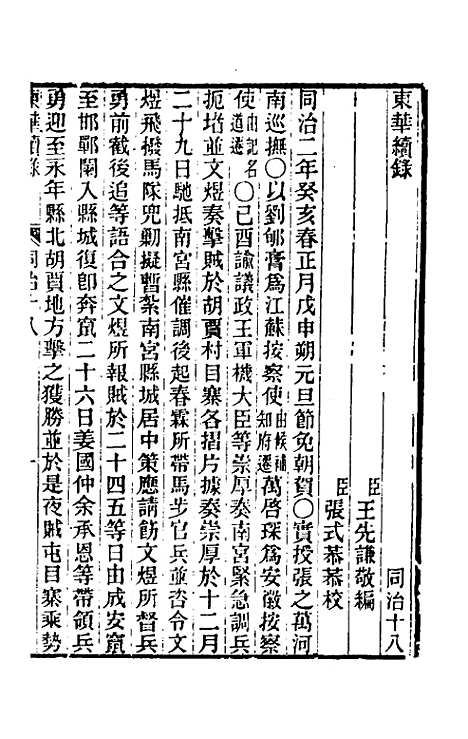 東華續錄　同治十八
臣王先謙敬編
臣張式恭恭校
同治二年癸亥春正月戊申朔元旦節免朝賀〇實授張之萬河
南巡撫〇以劉郇膏爲江蘇按察使由候補知府遷萬啓琛爲安徽按察
使由記名道遷〇己酉諭議政王軍機大臣等崇厚奏南宮緊急調兵
扼堵並文煜奏擊賊於胡賈村目寨各摺片據奏崇厚於十二月
二十九日馳抵南宮縣催調後起春霖所帶馬步官兵並咨令文
煜飛撥馬隊兜勦擬暫紮南宮縣城居中策應請飭文煜所督兵
勇前截後追等語合之文煜所報賊於二十四五等日由成安竄
至邯鄲闌入縣城復卽奔竄二十六日姜國仲余承恩等帶領兵
勇迎至永年縣北胡賈地方擊之獲勝並於是夜賊屯目寨乘勢
東華續錄　同治十八　一